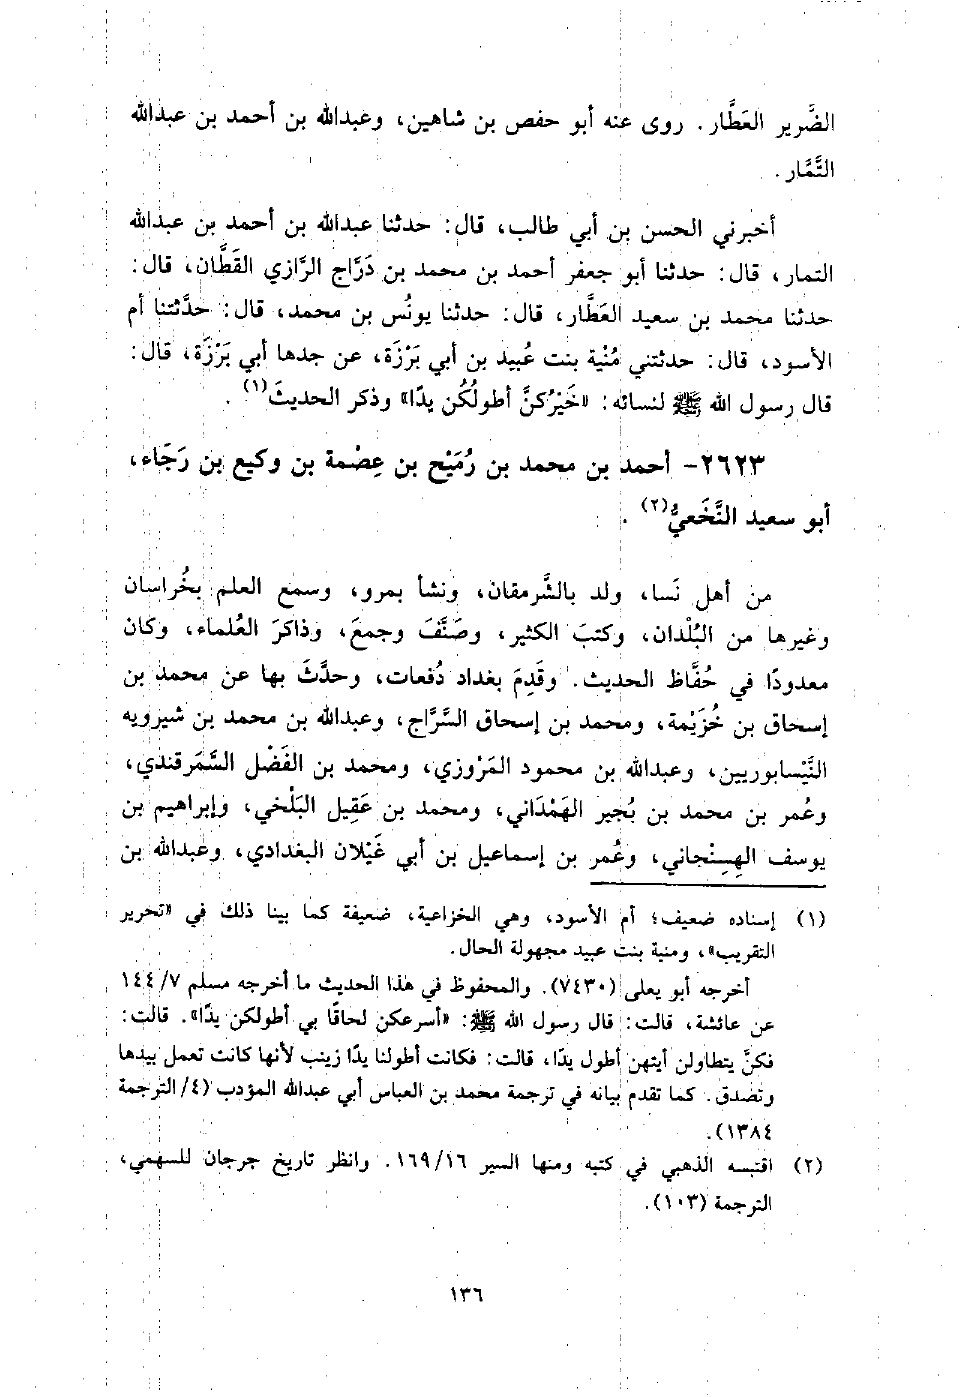 الضَّرير العَطَّار. روى عنه أبو حفص بن شاهين، وعبدالله بن أحمد بن عبدالله
التَّمَّار.
أخبرني الحسن بن أبي طالب، قال: حدثنا عبدالله بن أحمد بن عبدالله
التمار، قال: حدثنا أبو جعفر أحمد بن محمد بن دَرَّاج الرَّازي القَطَّان، قال:
حدثنا محمد بن سعيد العَطَّار، قال: حدثنا يونُس بن محمد، قال: حدَّثتنا أم
الأسود، قال: حدثتني مُنْية بنت عُبيد بن أبي بَرْزَة، عن جدها أبي بَرْزَة، قال:
قال رسول الله ﷺ لنسائه: «خَيْرُكنَّ أطولُكُن يدًا» وذكر الحديثَ(١).
٢٦٢٣- أحمد بن محمد بن رُمَيْح بن عِصْمة بن وكيع بن رَجَاء،
أبو سعيد النَّخَعيُّ(٢).
من أهل نَسا، ولد بالشَّرمقان، ونشأ بمرو، وسمع العلم بخُراسان
وغيرها من البُلْدان، وكتبَ الكثير، وصَنَّفَ وجمعَ، وذاكرَ العُلماء، وكان
معدودًا في حُفَّاظ الحديث. وقَدِمَ بغداد دُفعات، وحدَّثَ بها عن محمد بن
إسحاق بن خُزَيْمة، ومحمد بن إسحاق السَّرَّاج، وعبدالله بن محمد بن شيرويه
النَّيْسابوريين، وعبدالله بن محمود المَرْوزي، ومحمد بن الفَضْل السَّمَرقندي،
وعُمر بن محمد بن بُجير الهَمْدَاني، ومحمد بن عَقِيل البَلْخي، وإبراهيم بن
يوسف الهِسِنْجاني، وعُمر بن إسماعيل بن أبي غَيْلان البغدادي، وعبدالله بن
(١) إسناده ضعيف؛ أم الأسود، وهي الخزاعية، ضعيفة كما بينا ذلك في «تحرير
التقريب»، ومنية بنت عبيد مجهولة الحال.
أخرجه أبو يعلى (٧٤٣٠). والمحفوظ في هذا الحديث ما أخرجه مسلم ٧/ ١٤٤
عن عائشة، قالت: قال رسول الله ﷺ: «أسرعكن لحاقًا بي أطولكن يدًا». قالت:
فكنَّ يتطاولن أيتهن أطول يدًا، قالت: فكانت أطولنا يدًا زينب لأنها كانت تعمل بيدها
وتصدق. كما تقدم بيانه في ترجمة محمد بن العباس أبي عبدالله المؤدب (٤/ الترجمة
١٣٨٤).
(٢) اقتبسه الذهبي في كتبه ومنها السير ١٦/ ١٦٩. وانظر تاريخ جرجان للسهمي،
الترجمة (١٠٣).
١٣٦